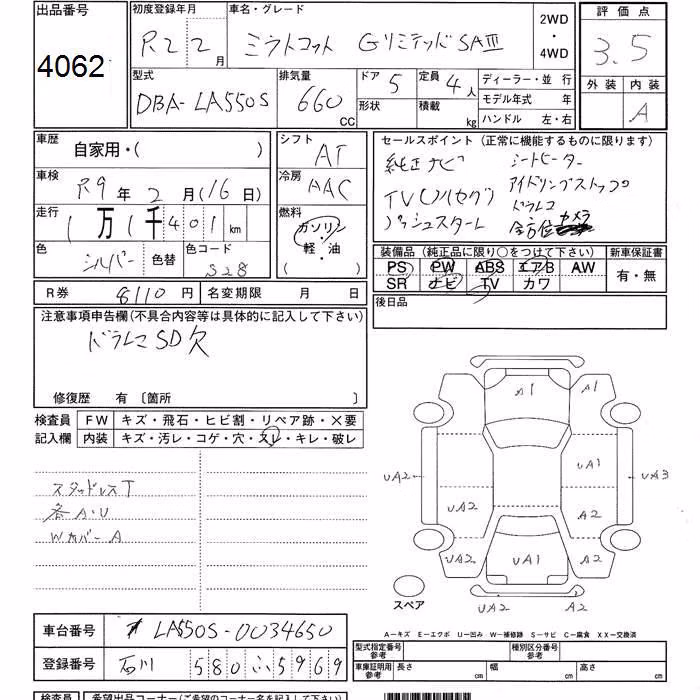 出品番号 4062
初度登録年月 R2 2月
車名・グレード ミラトコット GリミテッドSAⅢ
2WD・4WD
評価点 3.5
外装 内装 A
型式 DBA-LA550S
排気量 660cc
ドア 5
形状
定員 4人
積載 kg
ディーラー・並行
モデル年式 年
ハンドル 左・右
車歴 自家用・( )
車検 R9年2月(16日)
走行 1万1千401km
色 シルバー 色替
色コード S28
シフト AT
冷房 AAC
燃料 ガソリン 軽・油 ( )
セールスポイント (正常に機能するものに限ります)
純正ナビ シートヒーター
TV(フルセグ) アイドリングストップ
プッシュスタート ドラレコ
全方位カメラ
装備品 (純正品に限り○をつけて下さい)
PS PW ABS エアB AW
SR ナビ TV カワ
新車保証書 有・無
後日品
R券 8110円
名変期限 月 日
注意事項申告欄(不具合内容等は具体的に記入して下さい)
ドラレコSD欠
修復歴 有 〔箇所 〕
検査員記入欄
FW キズ・飛石・ヒビ割・リペア跡・×要
内装 キズ・汚レ・コゲ・穴・スレ・キレ・破レ
スタッドレスT
各A・U
WカバーA
A1 A1
UA2 UA1 UA3
UA2 A2
UA2 UA1 A2
スペア UA2 A2
A-キズ E-エクボ U-凹み W-補修跡 S-サビ C-腐食 XX-交換済
車台番号 LA550S-0034650
登録番号 石川 580 ふ 5969
型式指定番号 参考
種別区分番号 参考
車庫証明用 参考 長さ cm 幅 cm 高さ cm
検査員 希望出品コーナー(ご希望のコーナー名をご記入下さい)